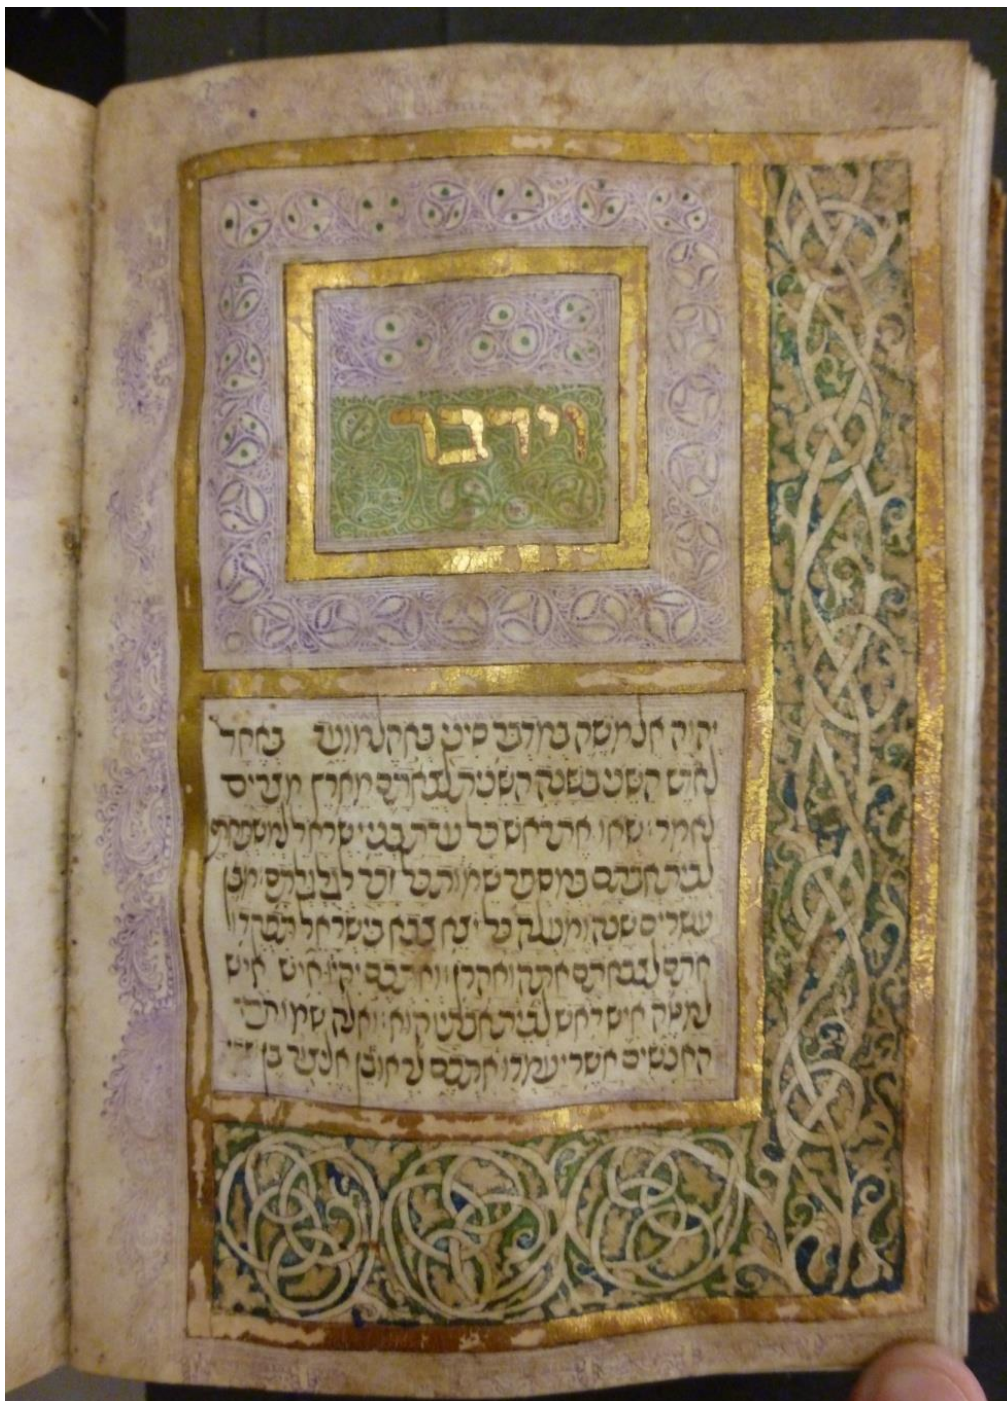 וידבר
יהוה אל משה במדבר סיני באהל מועד באחד
לחדש השני בשנה השנית לצאתם מארץ מצרים
לאמר: שאו את ראש כל עדת בני ישראל למשפחתם
לבית אבתם במספר שמות כל זכר לגלגלתם: מבן
עשרים שנה ומעלה כל יצא צבא בישראל תפקדו
אתם לצבאתם אתה ואהרן: ואתכם יהיו איש איש
למטה איש ראש לבית אבתיו הוא: ואלה שמות
האנשים אשר יעמדו אתכם לראובן אליצור בן